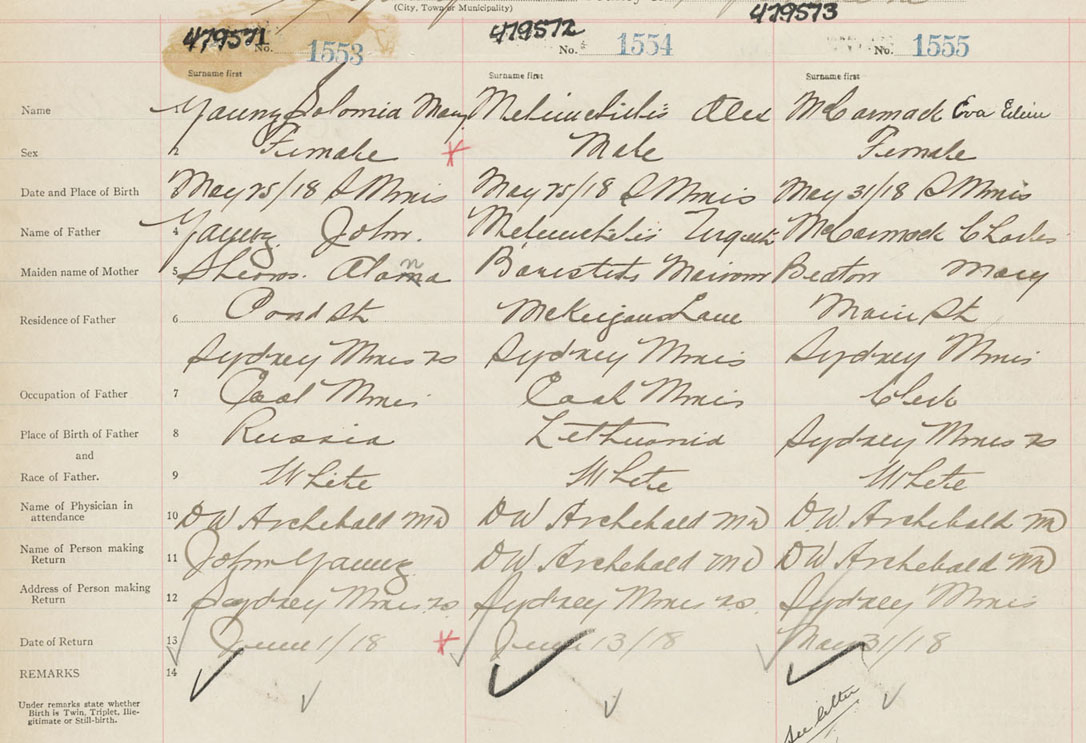 (City, Town or Municipality)
479571 479572 479573
No. 1553 No. 1554 No. 1555
Surname first Surname first Surname first
Name 1 Young Solomia Mary Alex McCormack Eva Eileen
Sex 2 Female Male Female
Date and Place of Birth May 25/18 S Mines May 25/18 S Mines May 31/18 S Mines
Name of Father 4 Young John. McCormack Charles
Maiden name of Mother 5 Beaton Mary
Residence of Father 6 Pond St McKeigans Lane Main St
Sydney Mines NS Sydney Mines Sydney Mines
Occupation of Father 7 Coal Miner Coal Miner Clerk
Place of Birth of Father 8 Russia Lethuania Sydney Mines NS
and
Race of Father. 9 White White White
Name of Physician in
attendance 10 DW Archebald MD DW Archebald MD DW Archebald MD
Name of Person making
Return 11 John Young DW Archebald MD DW Archebald MD
Address of Person making
Return 12 Sydney Mines NS Sydney Mines NS Sydney Mines
Date of Return 13 June 1/18 June 13/18 May 31/18
REMARKS 14
Under remarks state whether
Birth is Twin, Triplet, Ille-
gitimate or Still-birth.
See letter